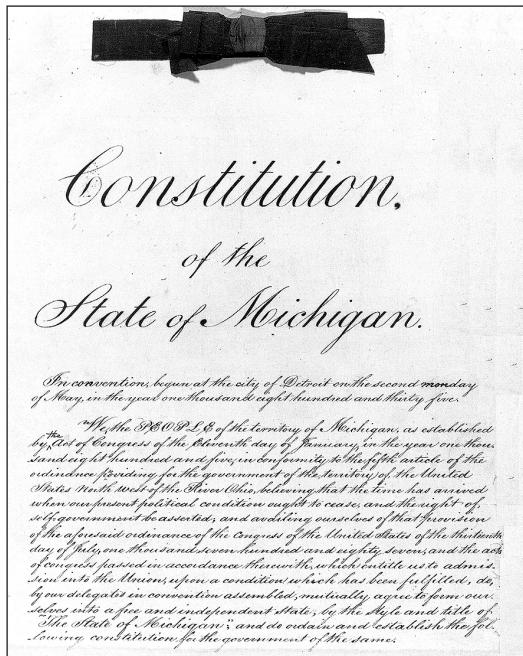 Constitution,
of the
State of Michigan.
In convention, begun at the city of Detroit on the second monday
of May, in the year one thousand eight hundred and thirty five.
We, the PEOPLE of the territory of Michigan, as established
by the Act of Congress of the Eleventh day of January, in the year one thou-
sand eight hundred and five, in conformity to the fifth article of the
ordinance providing for the government of the territory of the United
States North West of the River Ohio, believing that the time has arrived
when our present political condition ought to cease, and the right of
self-government be asserted; and availing ourselves of that provision
of the aforesaid ordinance of the congress of the United States of the thirteenth
day of July, one thousand seven hundred and eighty seven, and the acts
of congress passed in accordance therewith, which entitle us to admis-
sion into the Union, upon a condition which has been fulfilled, do,
by our delegates in convention assembled, mutually agree to form our-
selves into a free and independent state, by the style and title of
"The State of Michigan"; and do ordain and establish the fol-
lowing constitution for the government of the same.